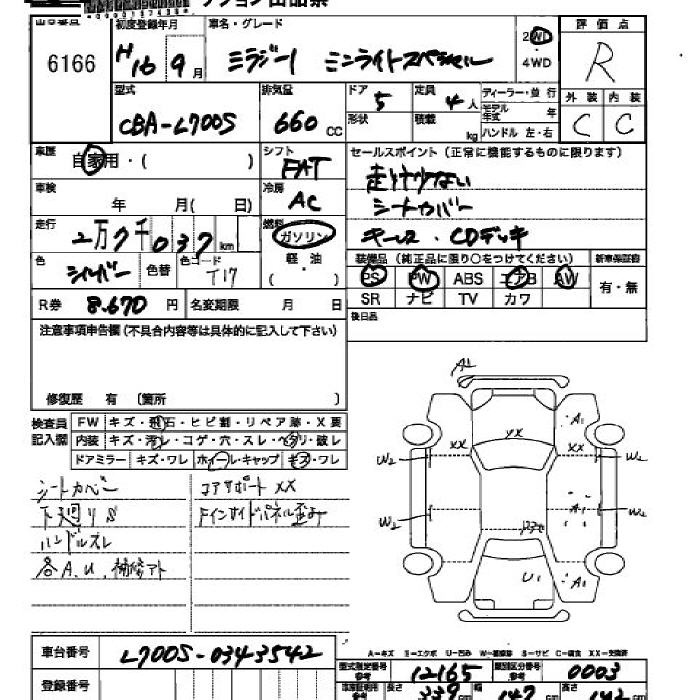 6166
初度登録年月
H16 9月
車名・グレード
ミラジーノ ミニライトスペシャル
2WD
4WD
評価点
R
外装 内装
C C
型式
CBA-L700S
排気量
660 CC
ドア
5
形状
定員
4人
積載
kg
ディーラー・並行
モデル年式 年
ハンドル 左・右
車歴
自家用・( )
シフト
FAT
セールスポイント(正常に機能するものに限ります)
走行少ない
シートカバー
キーレス・CDデッキ
車検
年 月( 日)
冷房
AC
走行
2万7千037km
燃料
ガソリン
軽・油
( )
色
シルバー
色替
色コード
T17
装備品(純正品に限り○をつけてください)
新車保証書
PS PW ABS エアB AW
SR ナビ TV カワ
有・無
R券 8.670円
名変期限 月 日
後日品
注意事項申告欄(不具合内容等は具体的に記入して下さい)
修復歴 有 〔箇所 〕
検査員
記入欄
FW キズ・飛石・ヒビ割・リペア跡・X要
内装 キズ・汚レ・コゲ・穴・スレ・ヘタリ・破レ
ドアミラー キズ・ワレ ホイール・キャップ キズ・ワレ
シートカバー
下廻りS
ハンドルスレ
各A.U.補修アト
コアサポートXX
Fインサイドパネル歪み
A1
A1
XX
XX
XX
W2
W2
A1
W2
W2
U1
A1
車台番号
L700S-0343542
登録番号
A-キズ E-エクボ U-凹み W-補修跡 S-サビ C-腐食 XX-交換済
型式指定番号
参考
12165
類別区分番号
参考
0003
長さ
339
cm
幅
147
cm
高さ
142
cm